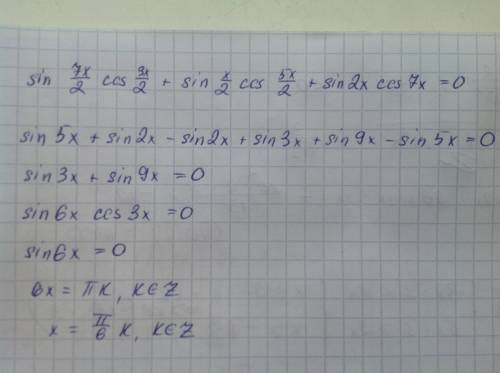 sin 7x/2 cos 3x/2 + sin x/2 cos 5x/2 + sin2x cos7x = 0
sin5x + sin2x - sin2x + sin3x + sin9x - sin5x = 0
sin3x + sin9x = 0
sin6x cos3x = 0
sin6x = 0
6x = πk, k∈Z
x = π/6 k, k∈Z